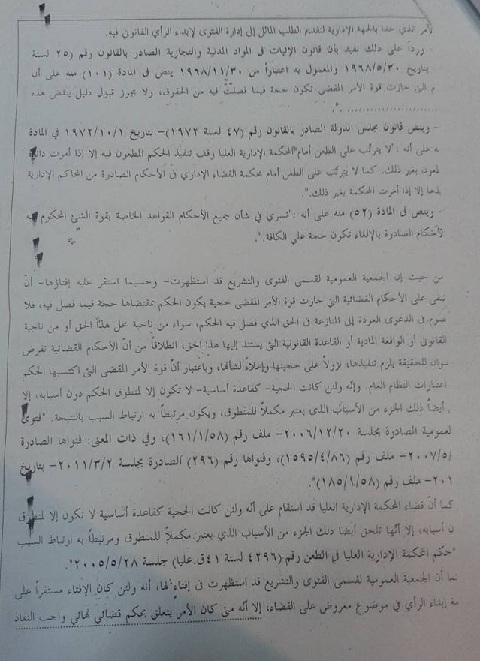 الأمر الذي حدا بالجهة الإدارية لتقديم الطلب الماثل إلى إدارة الفتوى لإبداء الرأي القانوني فيه.
وردا على ذلك نفيد بأن قانون الإثبات في المواد المدنية والتجارية الصادر بالقانون رقم (٢٥ لسنة
بتاريخ ١٩٦٨/٥/٣٠ والمعمول به اعتباراً من ١٩٦٨/١١/٣٠ ينص في المادة (١٠١) منه على أن
التي حازت قوة الأمر المقضي تكون حجة فيما فصلت فيه من الحقوق، ولا يجوز قبول دليل ينقض هذه
- وينص قانون مجلس الدولة الصادر بالقانون رقم (٤٧ لسنة ١٩٧٢)- بتاريخ ١٩٧٢/١٠/١ في المادة
منه على أنه: "لا يترتب على الطعن أمام المحكمة الإدارية العليا وقف تنفيذ الحكم المطعون فيه إلا إذا أمرت دائرة
الطعون بغير ذلك. كما لا يترتب على الطعن أمام محكمة القضاء الإداري في الأحكام الصادرة من المحاكم الإدارية
تنفيذها إلا إذا أمرت المحكمة بغير ذلك".
- وينص في المادة (٥٢) منه على أنه: "تسري في شأن جميع الأحكام القواعد الخاصة بقوة الشئ المحكوم فيه
الأحكام الصادرة بالإلغاء تكون حجة علي الكافة".
من حيث إن الجمعية العمومية لقسمي الفتوى والتشريع قد استظهرت- وحسبما استقر عليه إفتاؤها- أن
تبقى على الأحكام القضائية التي حازت قوة الأمر المقضي حجية يكون الحكم بمقتضاها حجة فيما فصل فيه، فلا
خصوم في الدعوى العودة إلى المنازعة في الحق الذي فصل فيه الحكم، سواء من ناحية محل هذا الحق أو من ناحية
القانوني أو الواقعة المادية أو القاعدة القانونية التي يستند إليها هذا الحق، انطلاقاً من أن الأحكام القضائية تفرض
عنوان للحقيقة يلزم تنفيذها، نزولاً على حجيتها وإعلاءً لشأنها، وباعتبار أنّ قوة الأمر المقضي التي اكتسبها الحكم
اعتبارات النظام العام. وإنه ولئن كانت الحجية- كقاعدة أساسية- لا تكون إلا لمنطوق الحكم دون أسبابه، إلا
أيضاً ذلك الجزء من الأسباب الذي يعتبر مكملاً للمنطوق، ويكون مرتبطاً به ارتباط السبب بالنتيجة. "فتوى
العمومية الصادرة بجلسة ٢٠٠٦/١٢/٢٠- ملف رقم (١٦١/١/٥٨)، وفي ذات المعنى: فتواها الصادرة
٢٠٠٧/٥/- ملف رقم (١٥٩٥/٤/٨٦)، وفتواها رقم (٢٩٦) الصادرة بجلسة ٢٠١١/٣/٢- بتاريخ
٢٠١- ملف رقم (١٨٥/١/٥٨)".
كما أن قضاء المحكمة الإدارية العليا قد استقام على أنّه ولئن كانت الحجية كقاعدة أساسية لا تكون إلا لمنطوق
دون أسبابه، إلا أنّها تلحق أيضا ذلك الجزء من الأسباب الذي يعتبر مكملاً للمنطوق ومرتبطاً به ارتباط السبب
"حكم المحكمة الإدارية العليا في الطعن رقم (٤٢٩٦ لسنة ٤١ ق.عليا) جلسة ٢٠٠٥/٥/٢٨".
كما أن الجمعية العمومية لقسمي الفتوى والتشريع قد استظهرت في إفتائها، أنه ولئن كان الإفتاء مستقراً على
إبداء الرأي في موضوع معروض على القضاء، إلا أنّه متى كان الأمر يتعلق بحكم قضائي نهائي واجب النفاذ